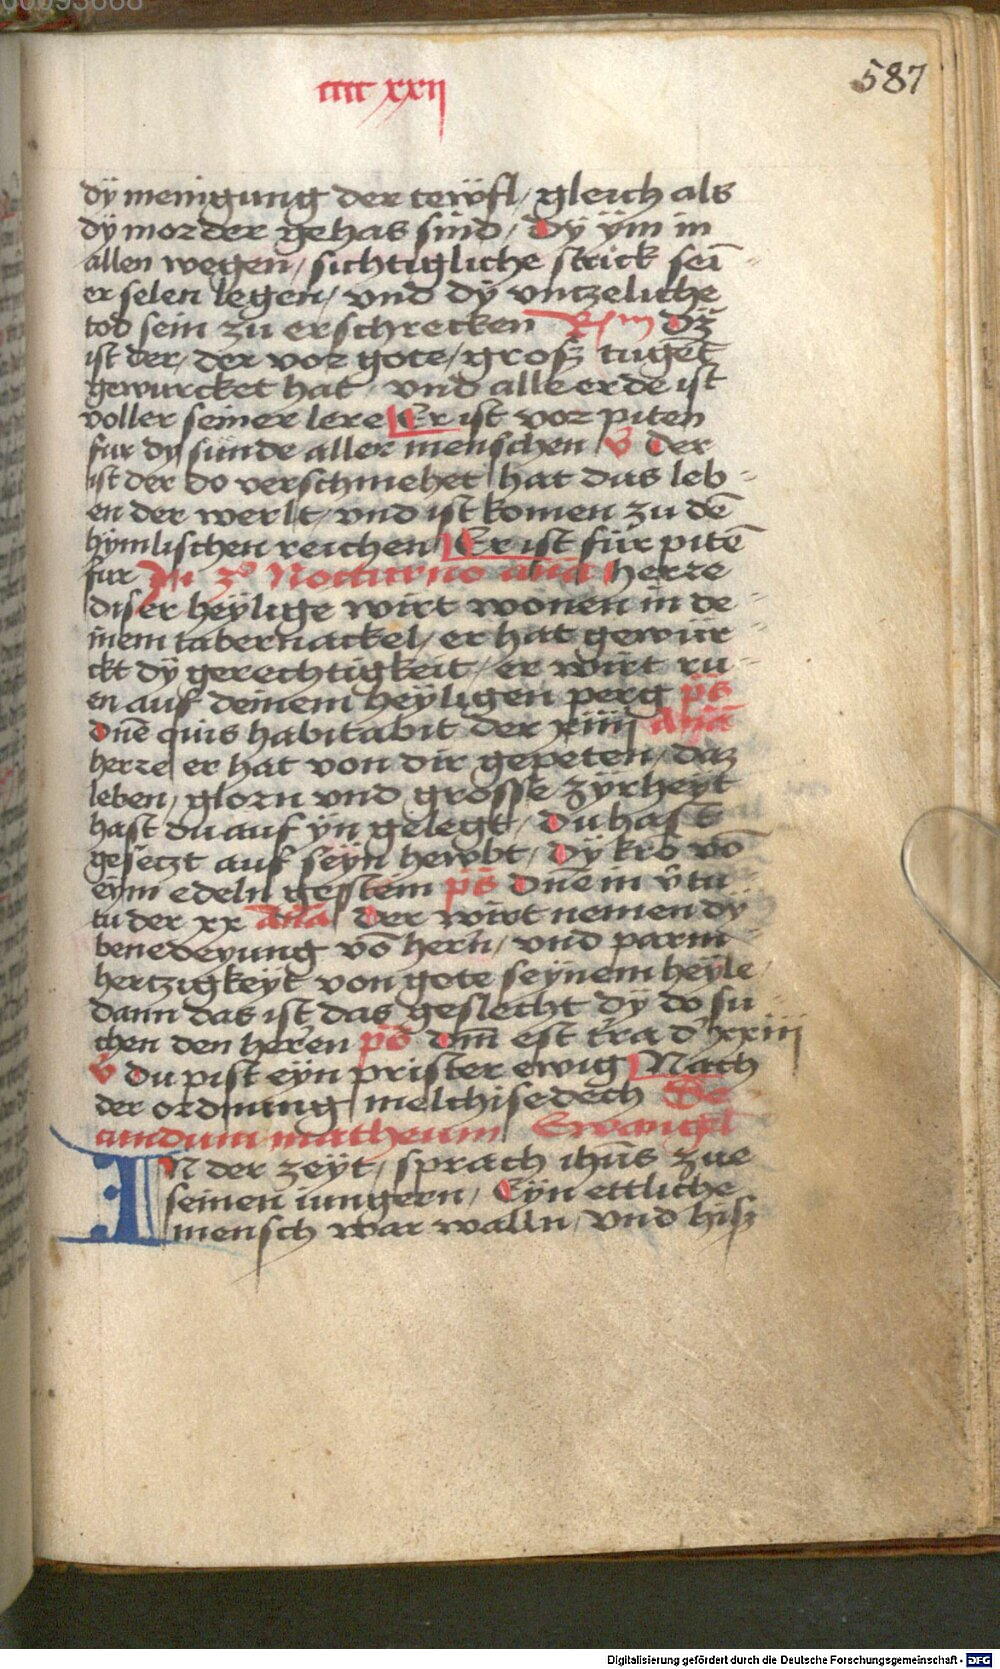 cccc xxij
587
dÿ menigung der tewfl / gleich als
dÿ morder gehas sind / Dÿ ÿm in
allen wegen / sichtigliche strick sei̅
er selen legen / vnd dÿ vntzeliche
tod sein zu erschrecken Rm Dz
ist der / der vor gote / grosz tuget̅
gewurcket hat vnd alle erde ist
voller seiner lere Er ist vor piten
fur dy sunde aller menschen v Der
ist der do verschmehet hat das leb
en der werlt / vnd ist komen zu de̅
hÿmlischen reichen Er ist für pite̅
fur In z° Nocturno ana herre
diser heÿlige wirt wonen in de
inem tabernackel / er hat gewür
ckt dÿ gerechtigkeit / er wirt ru
en auf deinem heÿligen perg ps̅
Dne̅ quis habitabit der xiiij Ana̅
herre er hat von dir gepeten / daz
leben / glorn vnd grosse zÿrheyt
hast du auf ÿn gelegt / Du hast
gesetzt auf seÿn hewbt / Dÿ kro̅ vo̅
eÿm edeln gesstein ps̅ Dne̅ in v̅tu
tu der xx Ana̅ Der wirt nemen dÿ
benedeyung vo̅ hern / vnd parm
hertzigkeÿt von gote seÿnem heÿle /
dann das ist das geslecht dÿ do su
chen den heren ps̅ Dm̅ est t'ra d' xxiij
v Du pist eÿn prister ewig Nach
der ordnung melchisedech Se
cundum matheum Ewangel̅
IN der zeÿt / sprach ihu̅s zue
seinen iungern / Eÿn ettliche
mensch war walln / vnd hisz
Digitalisierung gefördert durch die Deutsche Forschungsgemeinschaft - DFG